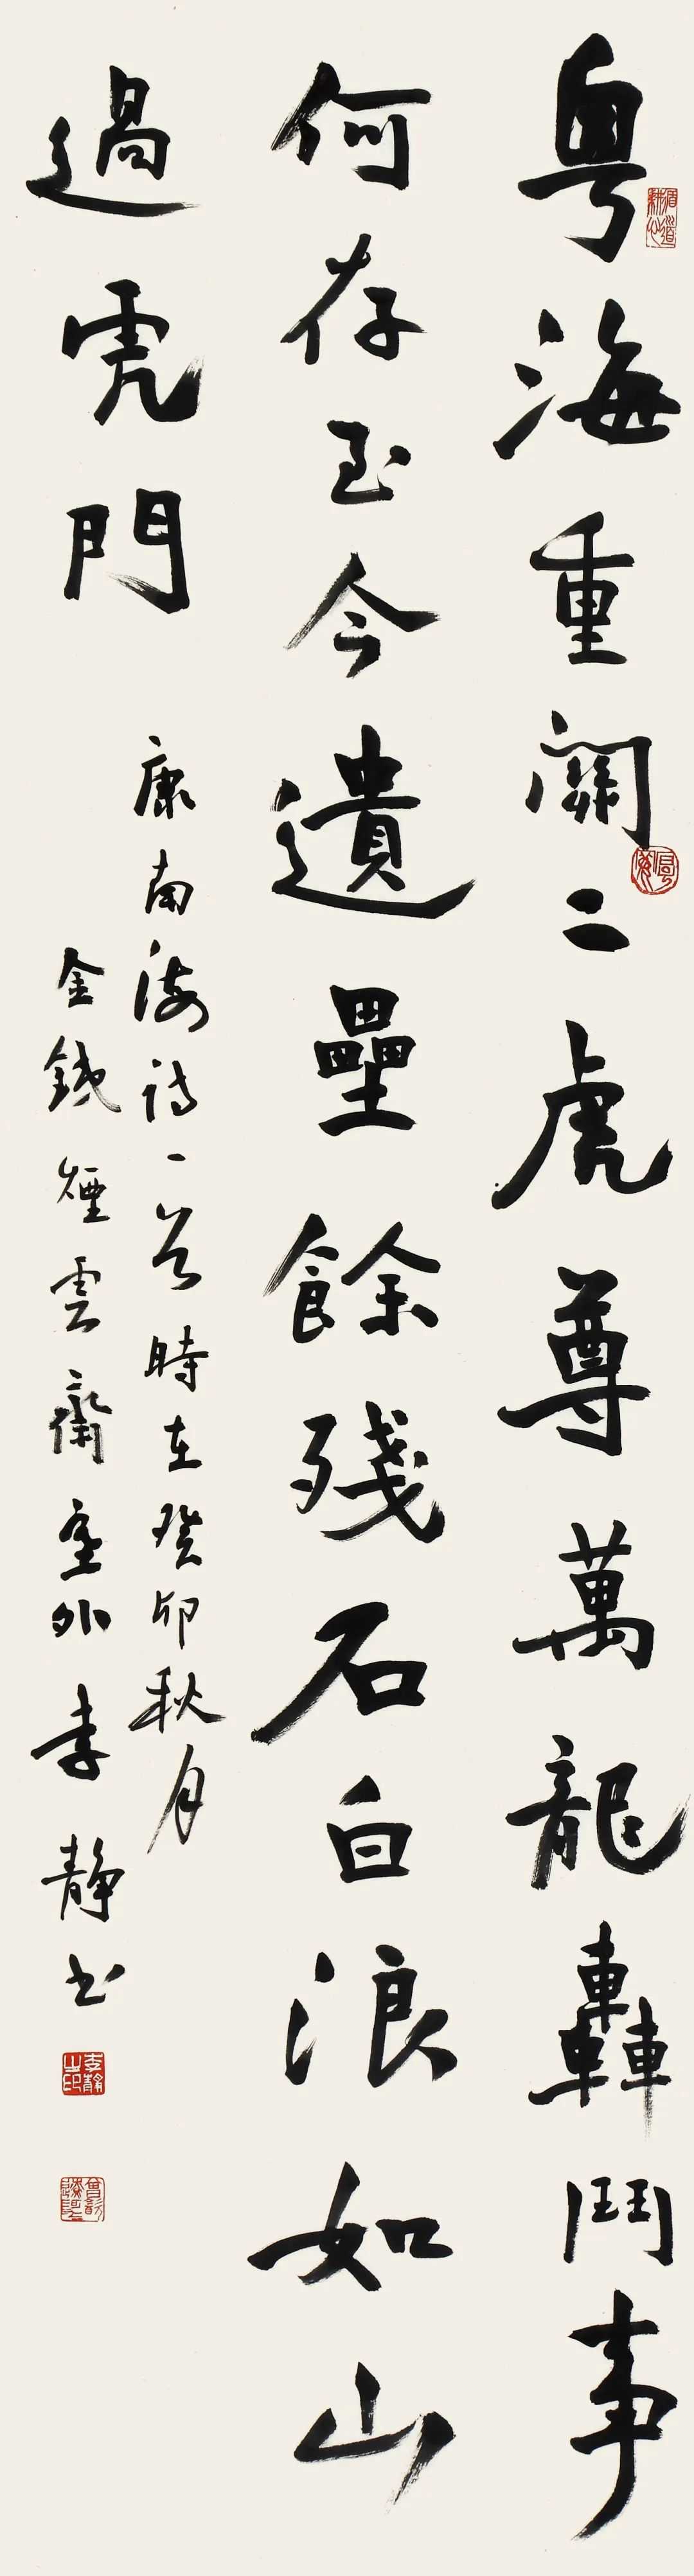 粤海重關二虎尊萬龍轟鬥事
何存至今遺壘餘殘石白浪如山
過虎門
康南海詩一首時在癸卯秋月
金錢煙雲齋室外李靜書
循道